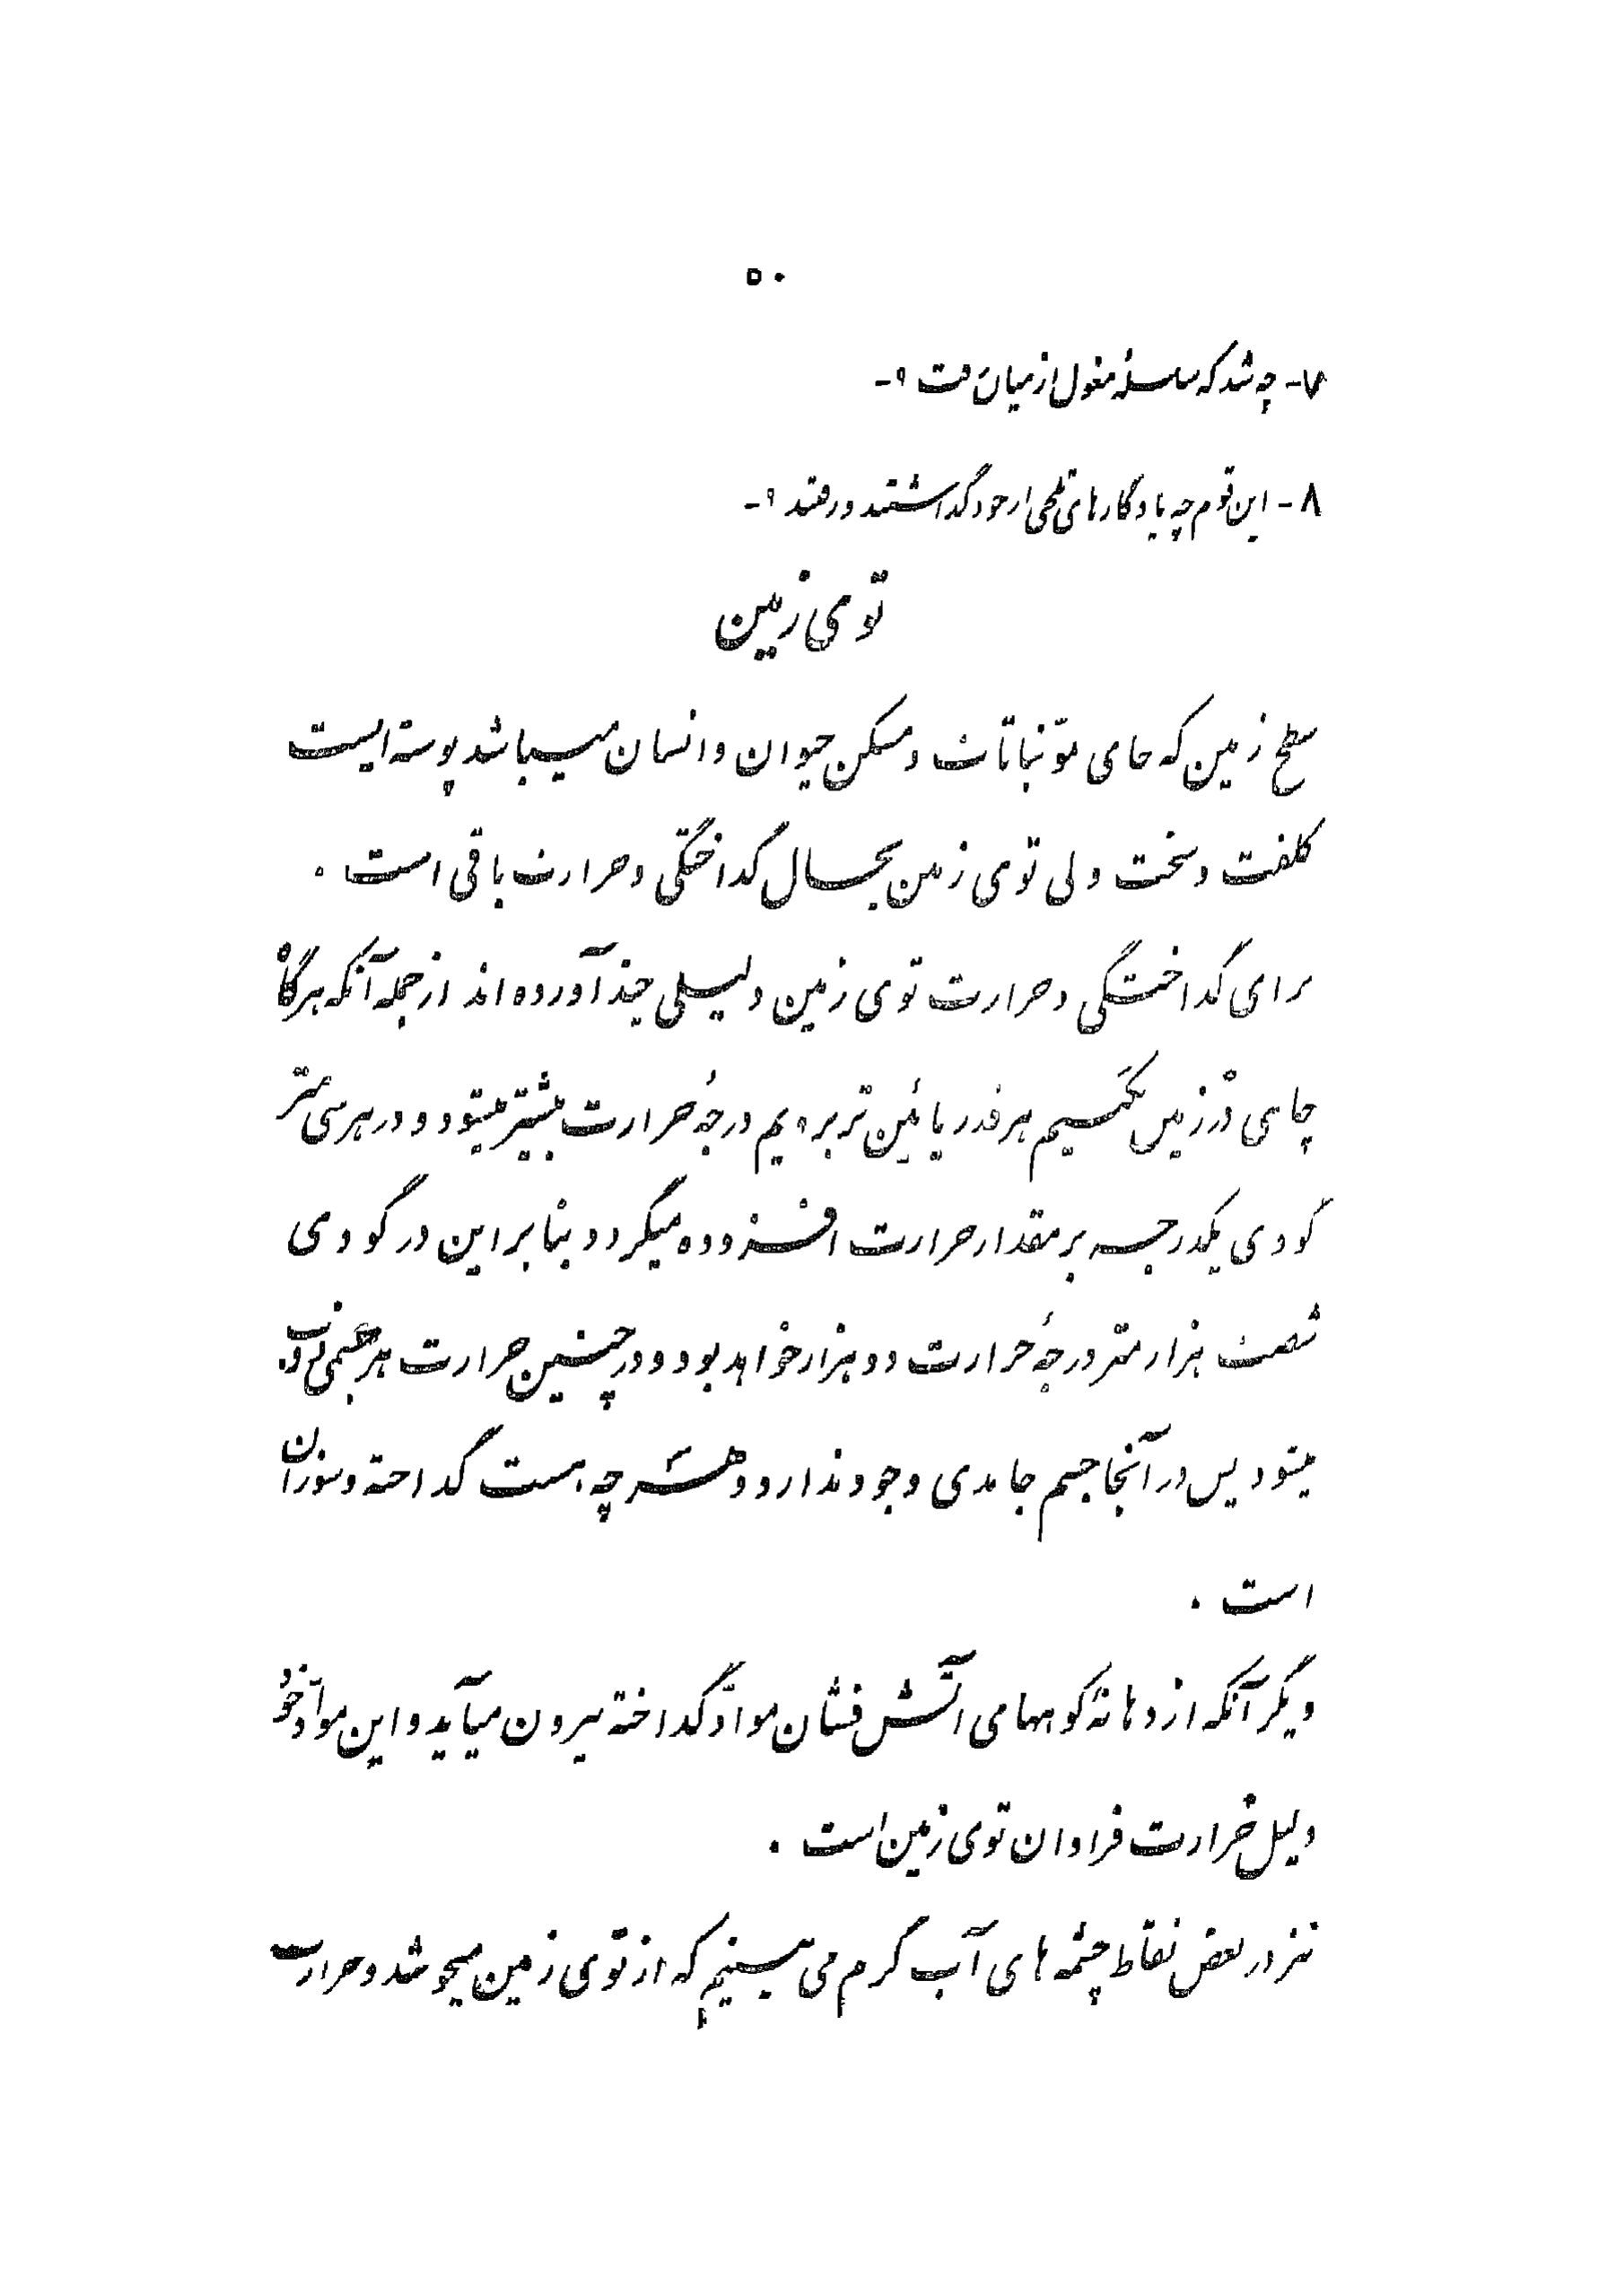 ۵۰
۷- چه شد که سلسلهٔ مغول از میان رفت ؟-
۸- این قوم چه یادگارهای تلخی از خود گذاشتند و رفتند ؟-
توی زمین
سطح زمین که جای نموّ نباتات و مسکن حیوان و انسان میباشد پوسته ایست
کلفت و سخت ولی توی زمین بحال گداختگی و حرارت باقی است .
برای گداختگی و حرارت توی زمین دلیلی چند آورده اند از جمله آنکه هرگاه
چاهی در زمین بکنیم هر قدر پائین تر برویم درجهٔ حرارت بیشتر میشود و در هر سی متر
گودی یکدرجه بر مقدار حرارت افزوده میگردد بنابراین در گودی
شصت هزار متر درجهٔ حرارت دو هزار خواهد بود و در چنین حرارت هر جسمی ذوب
میشود پس در آنجا جسم جامدی وجود ندارد و هر چه هست گداخته و سوزان
است .
دیگر آنکه از دهانهٔ کوههای آتش فشان موادّ گداخته بیرون میآید و این موادّ خود
دلیل حرارت فراوان توی زمین است .
نیز در بعض نقاط چشمه های آب گرم می بینیم که از توی زمین میجوشد و حرارت